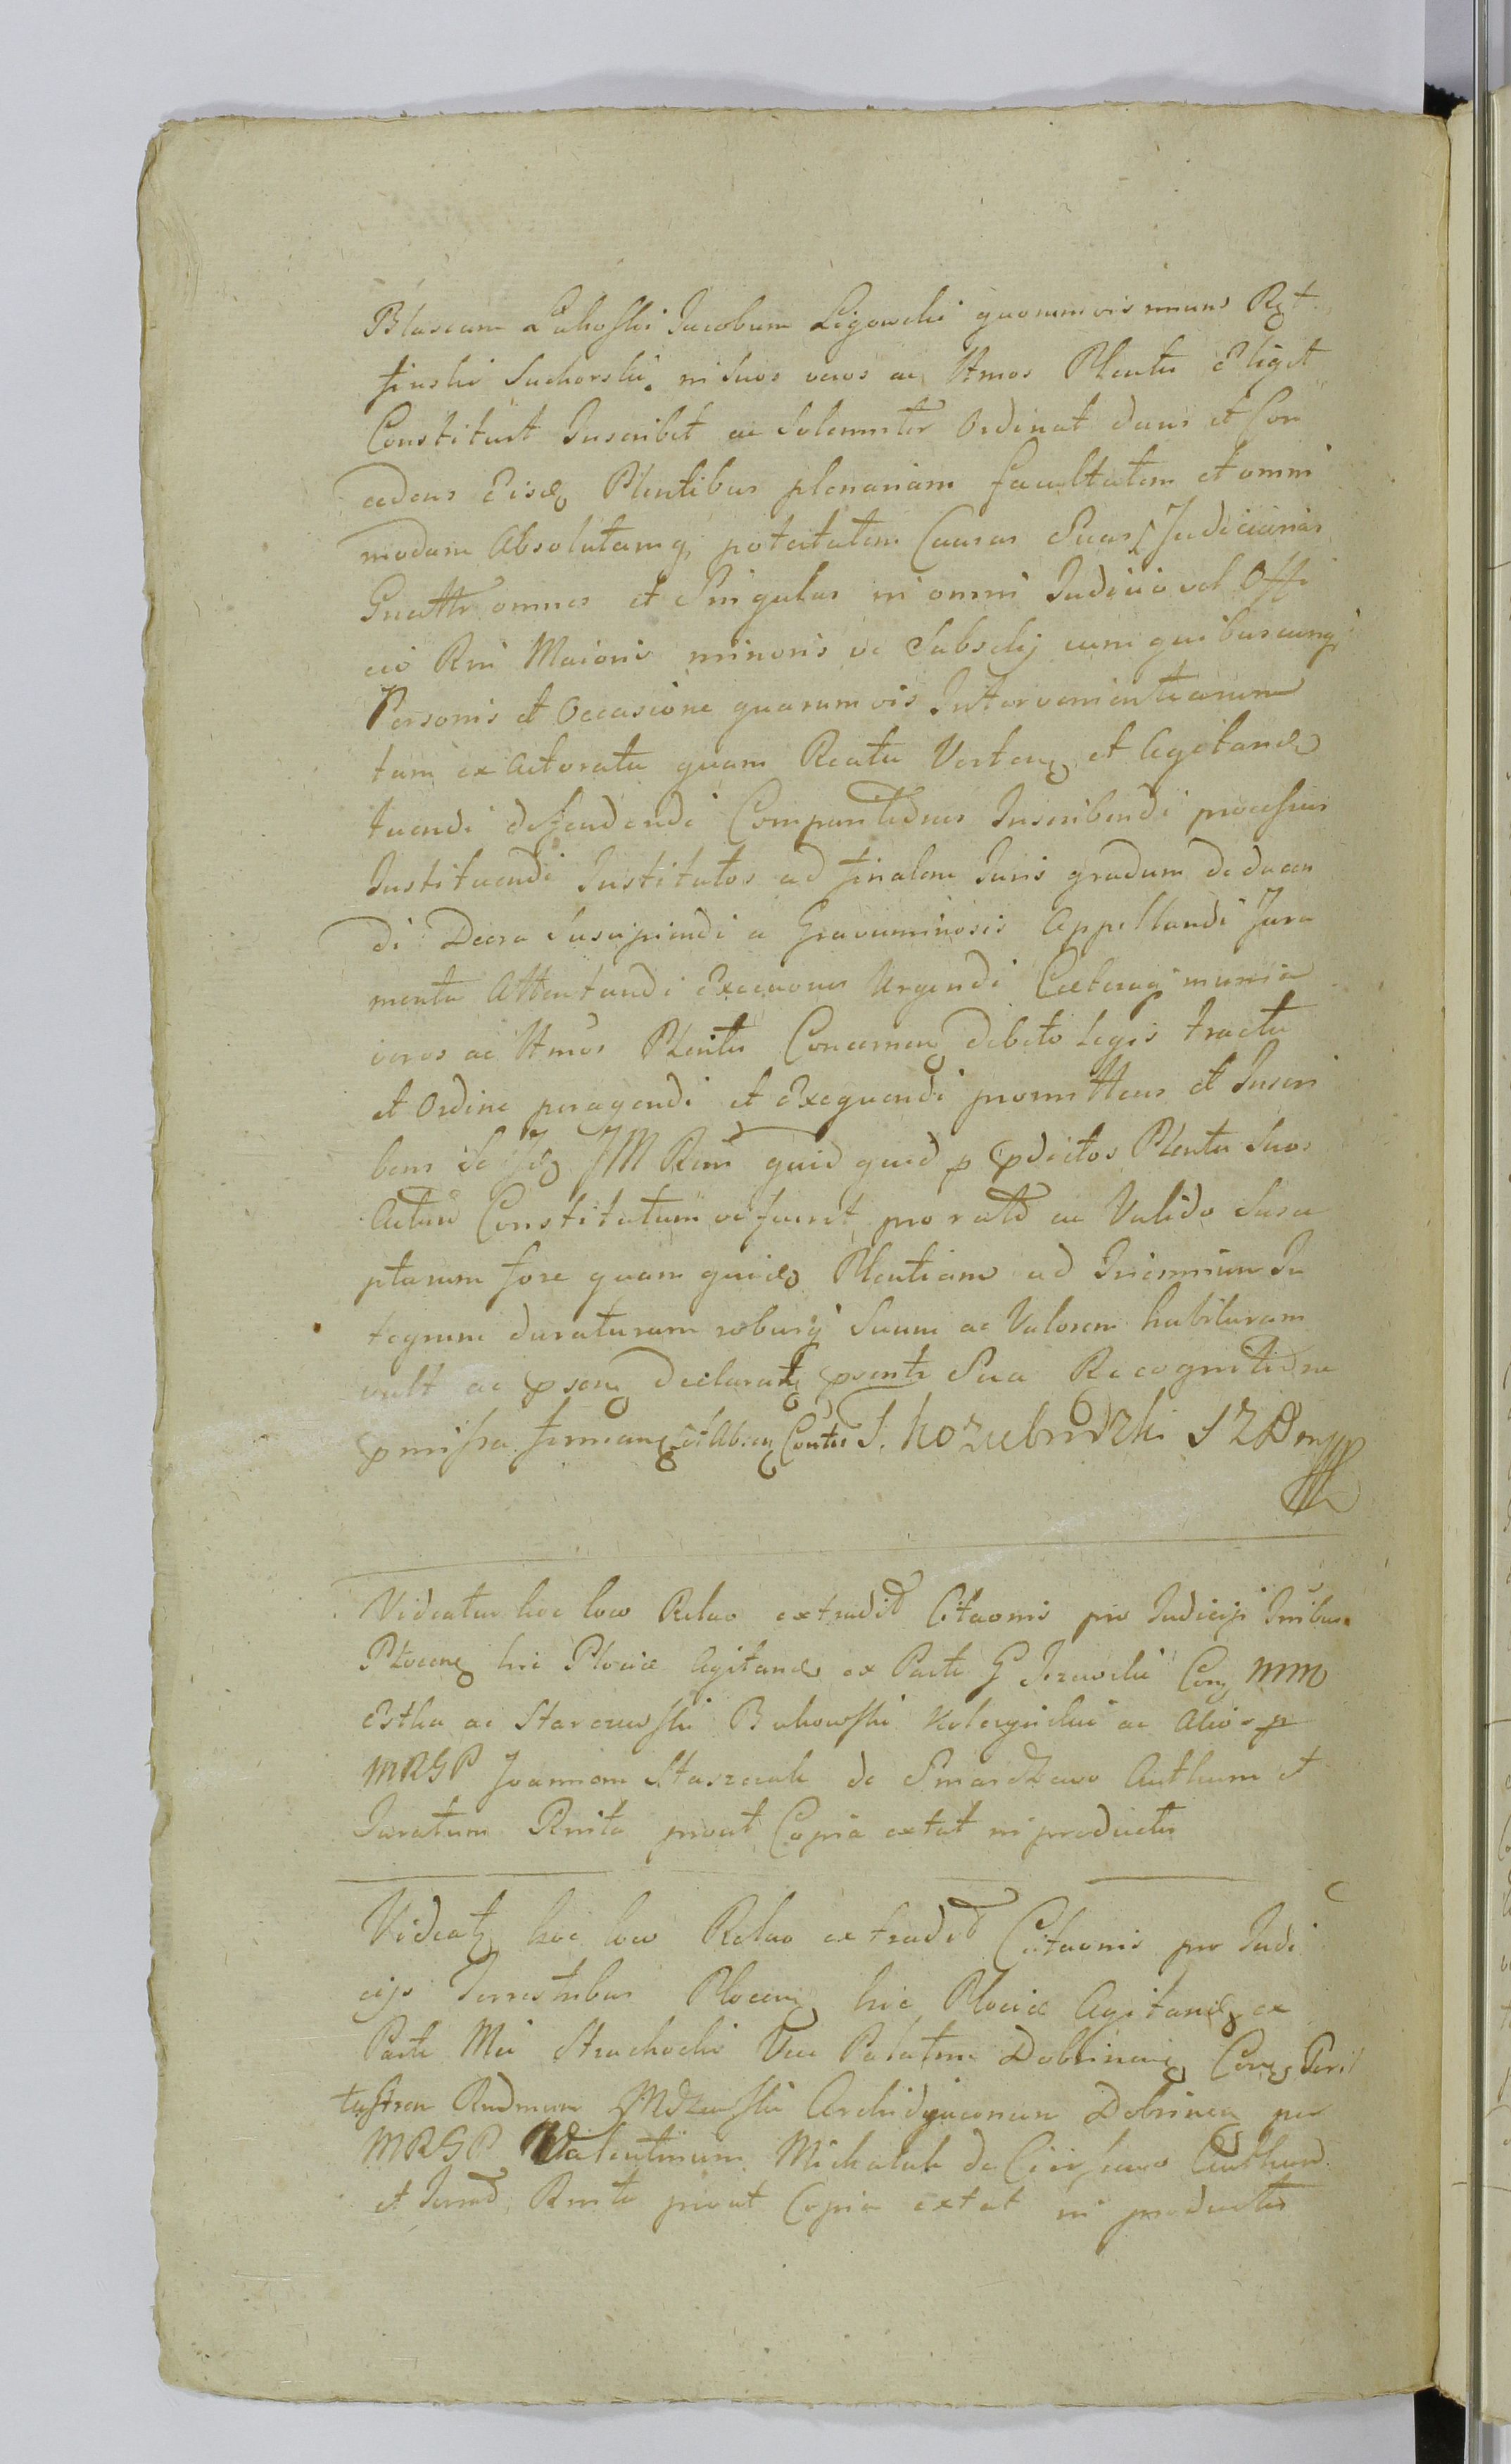 Blascum Lukoski Jacobum Ligowski quorumvis munus Rgt
finski Suchorski in Suos veros ac lttmos Plentes Eligit
Constituit Inscribit ac Solemniter Ordinat dans et Con
cedens Eisdem Plentibus plenariam facultatem et omni
modam Absolutamq potestatem Causas Suas Judiciarias
Gnalter omnes et Singulas in omni Judicio vel Offi
cio Rni Maioris minoris ve Subselij cum quibuscunq
Personis et Occasione quarumvis Intervenientiarum
tam ex Actoratu quam Reatu Verten et Agitand
tuendi defendendi Comparitiones Inscribendi processus
Instituendi Institutos ad finalem Juris gradum deducen
di Decra Suscipiendi a Gravaminosis Appellandi Jura
menta Attentandi Execuones Urgendi Caeteraq munia
veros ac lttmos Plentes Concernen debito Legis tractu
et Ordine peragendi et Exequendi promittens et Inscri
bens Se JM Rem quid quid p pdictos Plentes Suos
Actum Constitutum ve fuerit pro rato ac Valido Susce
pturum fore quam quid Plentiam ad Triennium In
tegrum duraturam roburq Suum ac Valorem habituram
vult ac psen declarat psente Sua Recognitione
pmissa firman et Absen Contis S. Kozubrodzki S Z Dm
Videatur hoc loco Relao extradit Citaonis pro Judicijs Tribus
Plocen hic Plociae Agitand ex Parte G Jezewski Con MM
Estka ac Starczewski Bukowski Kolczynski ac Alio p
MRGP Joannem Staszczak de Smardzewo Authum et
Juratum Rnita prout Copia extat in productis
Videat hoc loco Relao extradit Citaonis pro Judi
cijs Terrestribus Plocen hic Plociae Agitand ex
Parte Mci Strachocki Vice Palatini Dobrinen Con Peril
lustren Rndmum Archidyaconum Dobrinen per
MRGP Valentinum Michalak de Authum
et Jurat Rnita prout Copia extat in productis